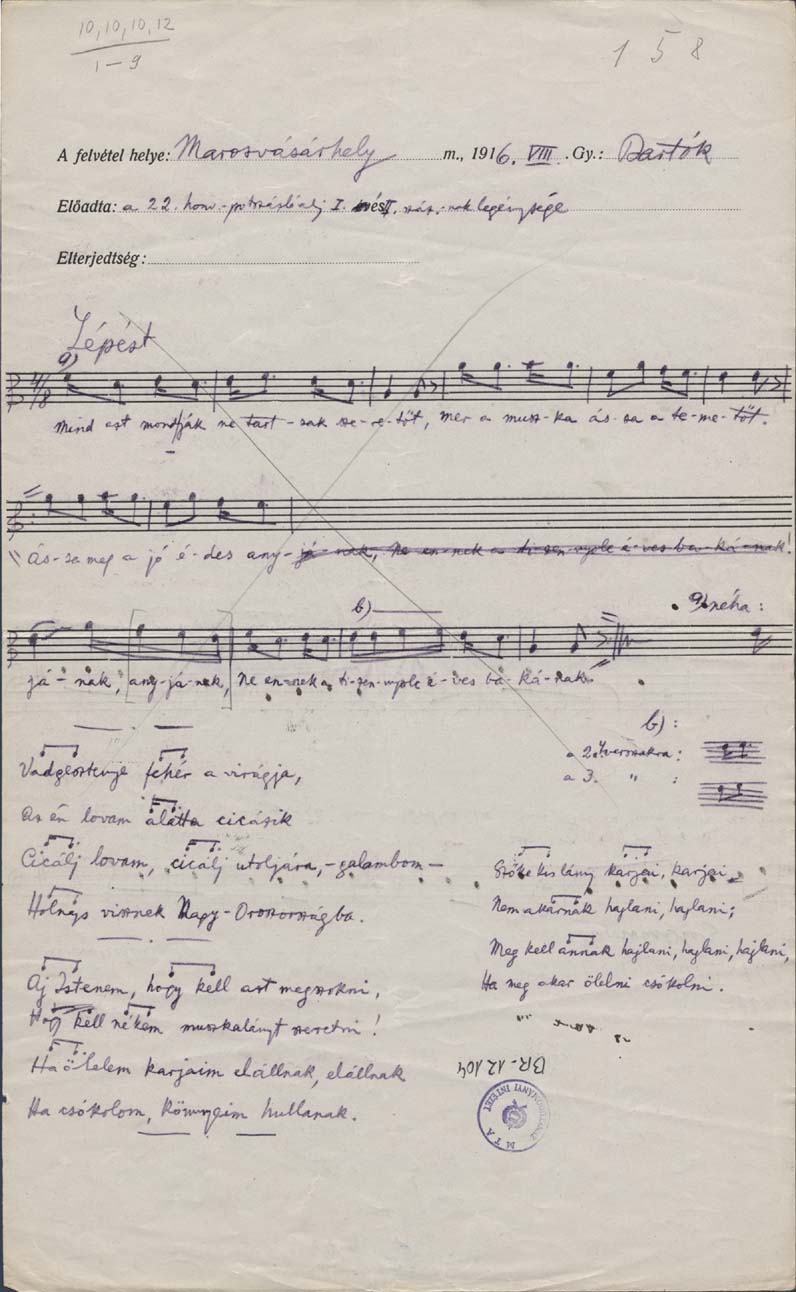 10, 10, 10, 12
1–9
158
A felvétel helye: Marosvásárhely m., 1916. VIII. Gy.: Bartók
Előadta: a 22. honv. I. és II. száz.-nak legénysége
Elterjedtség:
Lépést
a)
4/8
Mind azt mondják ne tart-sak sze-re-tőt, mer a musz-ka ás-sa a te-me-tőt.
Ás-sa meg a jó é-des any-já-nak, Ne en-nek a ti-zen-nyolc é-ves ba-ká-nak!
b)
a) néha:
já-nak, any-já-nak, Ne en-nek a ti-zen-nyolc é-ves ba-ká-nak
b):
a 2. versszakra:
a 3. " :
Vadgesztenye fehér a virágja,
Az én lovam alatta cicázik
Cicálj lovam, cicálj utoljára, -galambom-
Holnap visznek Nagy-Oroszországba.
Aj Istenem, hogy kell azt megszokni,
Hogy kell nékem muszkalányt szeretni!
Ha ölelem karjaim elállnak, elállnak
Ha csókolom, könnyeim hullanak.
Szőke kis lány karjai, karjai
Nem akarnak hajlani, hajlani;
Meg kell annak hajlani, hajlani, hajlani,
Ha meg akar ölelni csókolni.
BR-12104
MTA TUDOMÁNYI INTÉZET